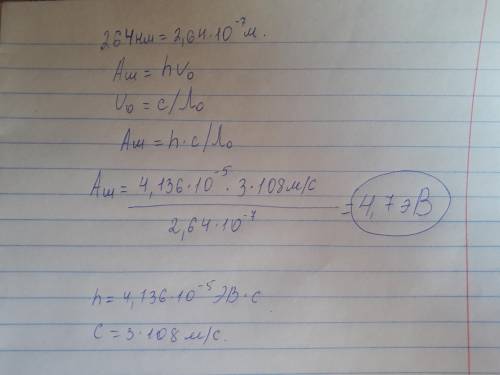 264нм = 2,64·10⁻⁷м.
Aш = hν₀
ν₀ = c/λ₀
Aш = h·c/λ₀
Aш = 4,136·10⁻⁵ · 3·108м/с / 2,64·10⁻⁷ = 4,7эВ
h = 4,136·10⁻⁵ эВ·с
c = 3·108м/с.